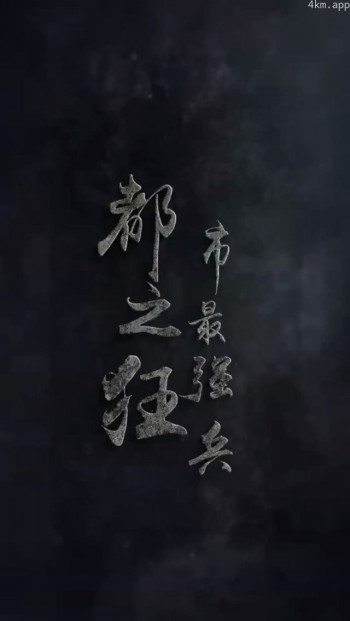 4km.app
都之狂
市最强兵